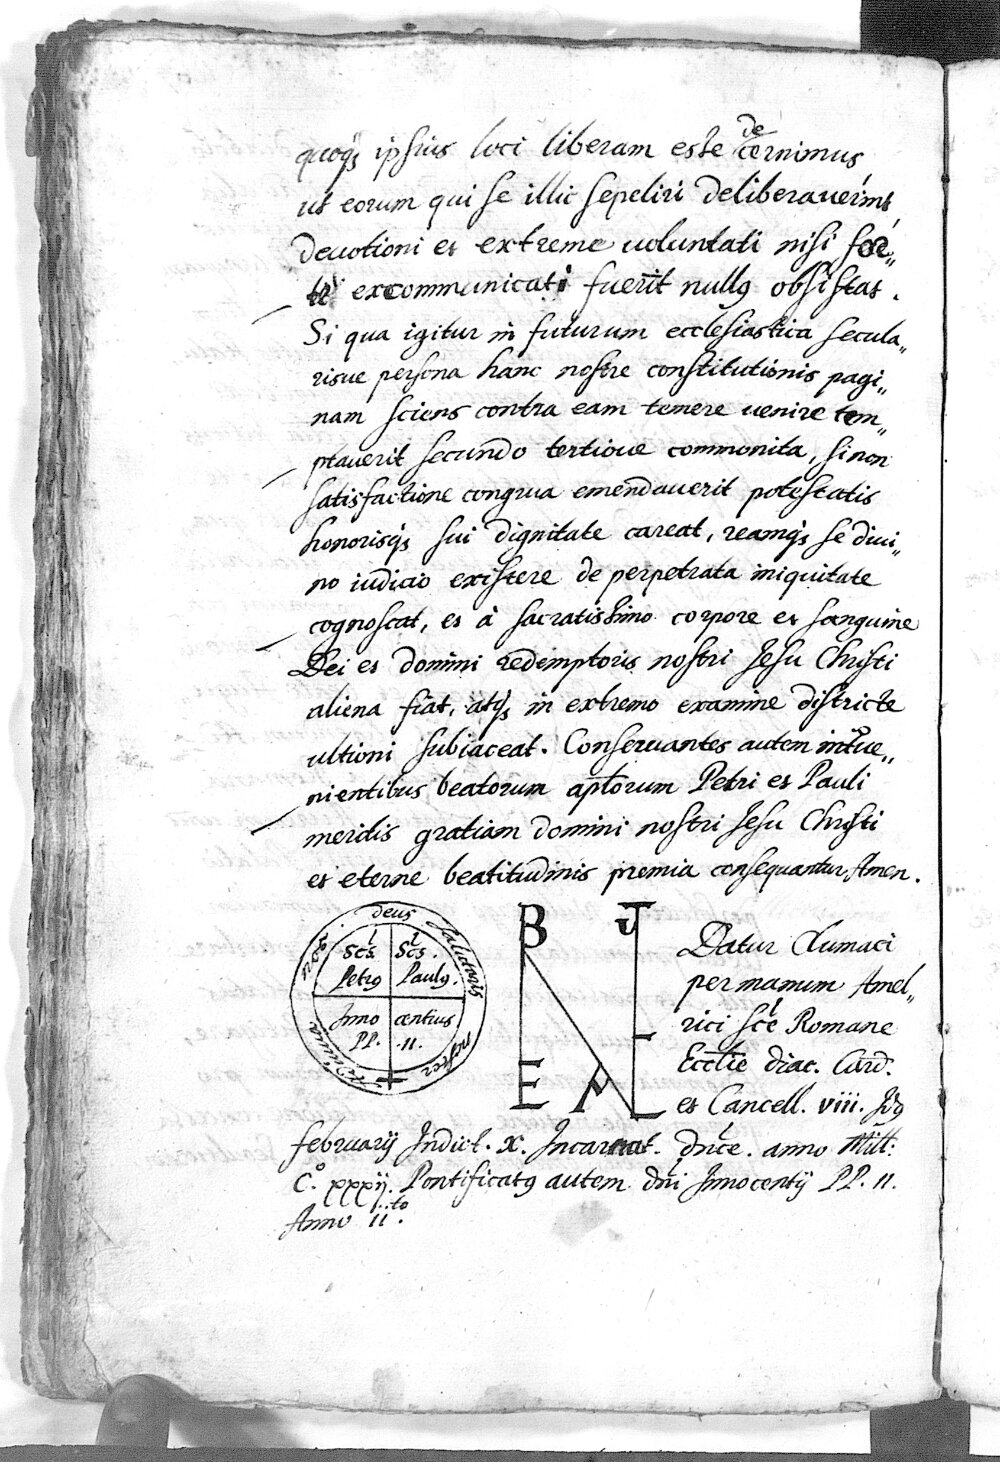 quoq3 ipsius loci liberam esse decernimus
ut eorum qui se illic sepeliri deliberauerint
deuotioni et extreme uoluntati nisi for„
te excommunicati fuerīt null9 obsistat.
Si qua igitur in futurum ecclesiastica secula„
risue persona hanc nostre constitutionis pagi„
nam sciens contra eam temere uenire tem„
ptauerit secundo tertioue commonita, si non
satisfactione congrua emendauerit potestatis
honorisq3 sui dignitate careat, reamq3 se diui„
no iudicio existere de perpetrata iniquitate
cognoscat, et à sacratissimo corpore et sanguine
Dei et domini redemptoris nostri Jesu Christi
aliena fiat, atq3 in extremo examine districte
ultioni subiaceat. Conseruantes autem interue„
nientibus beatorum aptorum Petri et Pauli
meritis gratiam domini nostri Jesu Christi
et eterne beatitudinis premia consequantur, Amen.
deus salutaris noster
Scs Petr9
Scs. Paul9.
Inno PP.
centius .II.
B
E
Datur Clumaci
per manum Amel„
rici scē Romane
Ecctie diac. Card.
et Cancell. viii. Id9
februarij Indict. x. Incarnat. dnice. anno Mill.
C.º xxxij. Pontificat9 autem dni Innocentij PP. II.
Anno ii.to